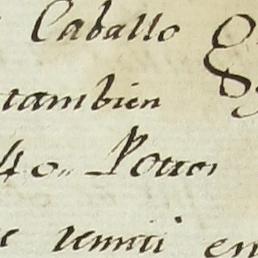 Caballo
tambien
40,, Potros
remiti en